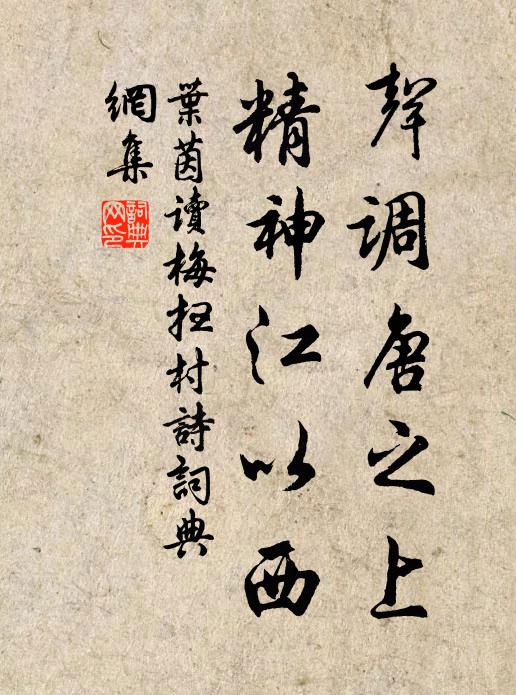 聲調唐之上
精神江以西
葉茵讀梅抂村詩詞典
網集
詞典
网印